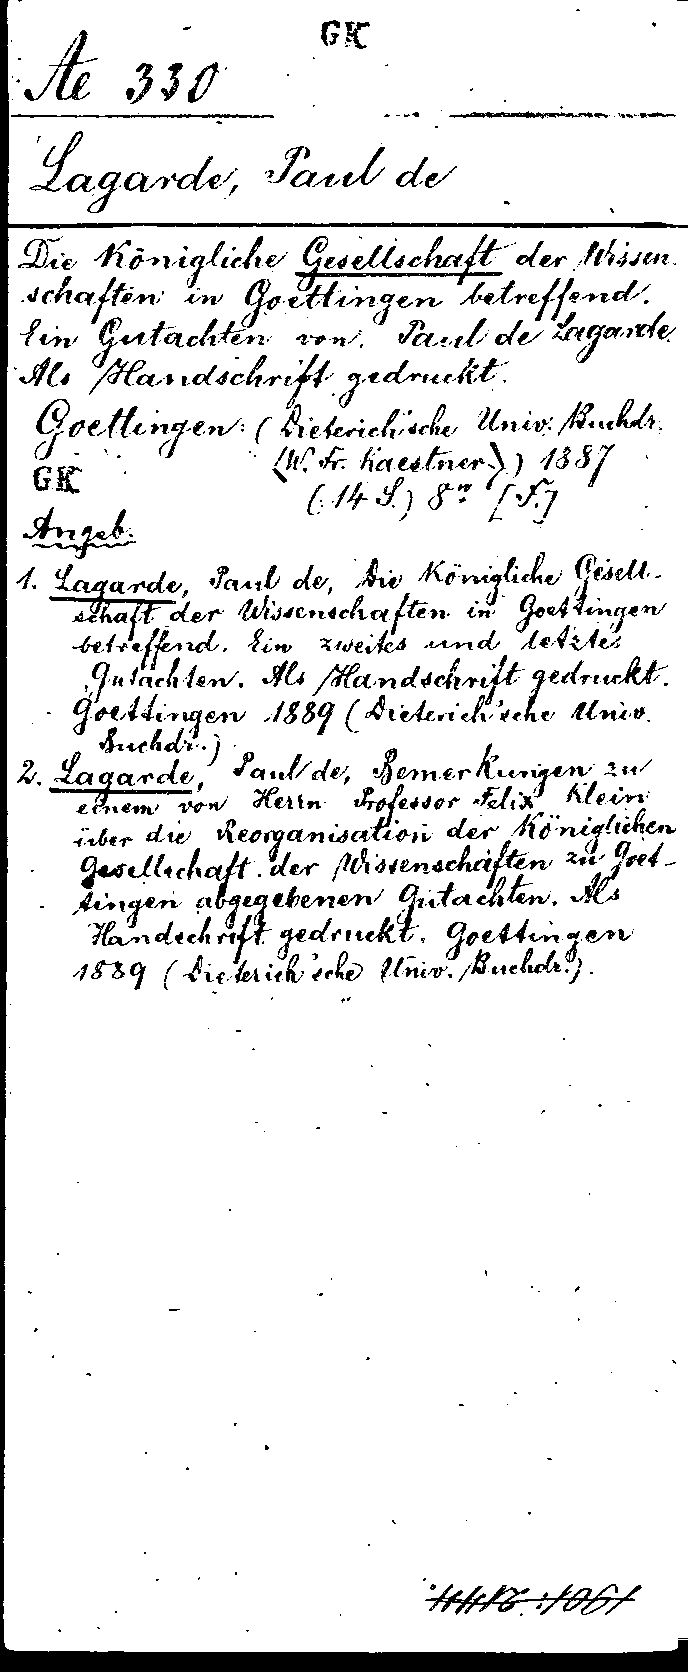 GK
Ae 330
Lagarde, Paul de
Die Königliche Gesellschaft der Wissen-
schaften in Goettingen betreffend.
Ein Gutachten von Paul de Lagarde.
Als Handschrift gedruckt.
Goettingen: (Dieterich'sche Univ. Buchdr.
GK <W. Fr. Kaestner>) 1887
(14 S.) 8° [F.]
Angeb.
1. Lagarde, Paul de, Die Königliche Gesell-
schaft der Wissenschaften in Goettingen
betreffend. Ein zweites und letztes
Gutachten. Als Handschrift gedruckt.
Goettingen 1889 (Dieterich'sche Univ.
Buchdr.)
2. Lagarde, Paul de, Bemerkungen zu
einem von Herrn Professor Felix Klein
über die Reorganisation der Königlichen
Gesellschaft der Wissenschaften zu Goet-
tingen abgegebenen Gutachten. Als
Handschrift gedruckt. Goettingen
1889 (Dieterich'sche Univ. Buchdr.).